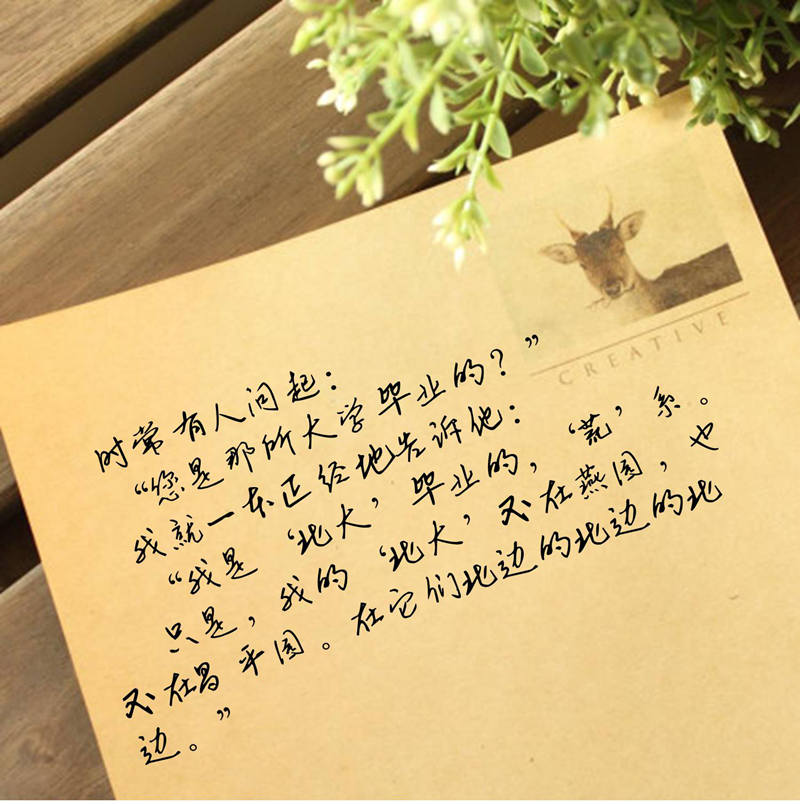 CREATIVE
时常有人问起：
“您是那所大学毕业的？”
我就一本正经地告诉他：
“我是‘北大’毕业的，‘荒’系。
只是，我的‘北大’不在燕园，也
不在昌平园。在它们北边的北边的北
边。”